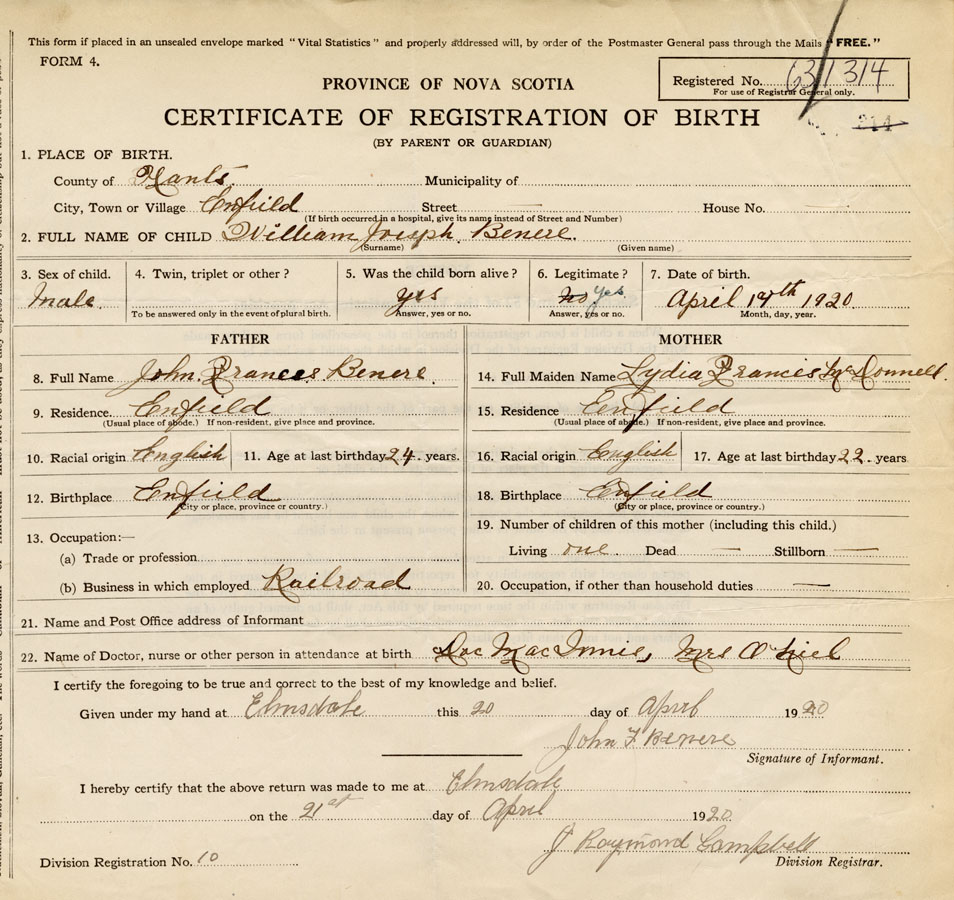 This form if placed in an unsealed envelope marked "Vital Statistics" and properly addressed will, by order of the Postmaster General pass through the Mails "FREE."
FORM 4.
Registered No. 631314
For use of Registrar General only.
PROVINCE OF NOVA SCOTIA
CERTIFICATE OF REGISTRATION OF BIRTH
(BY PARENT OR GUARDIAN)
1. PLACE OF BIRTH.
County of Hants. Municipality of
City, Town or Village Enfield Street House No.
(If birth occurred in a hospital, give its name instead of Street and Number)
2. FULL NAME OF CHILD William Joseph Benere.
(Surname) (Given name)
3. Sex of child. 4. Twin, triplet or other? 5. Was the child born alive? 6. Legitimate? 7. Date of birth.
Male. yes no yes April 17th 1920
To be answered only in the event of plural birth. Answer, yes or no. Answer, yes or no. Month, day, year.
FATHER MOTHER
8. Full Name John Frances Benere. 14. Full Maiden Name Lydia Francis McDonnell.
9. Residence. Enfield 15. Residence Enfield
(Usual place of abode.) If non-resident, give place and province. (Usual place of abode.) If non-resident, give place and province.
10. Racial origin English 11. Age at last birthday 24. years. 16. Racial origin English 17. Age at last birthday 22. years
12. Birthplace Enfield 18. Birthplace Enfield
(City or place, province or country.) (City or place, province or country.)
13. Occupation:— 19. Number of children of this mother (including this child.)
(a) Trade or profession Living one. Dead — Stillborn —
(b) Business in which employed Railroad 20. Occupation, if other than household duties —
21. Name and Post Office address of Informant
22. Name of Doctor, nurse or other person in attendance at birth Doc MacInnis, Mrs O'Niel
I certify the foregoing to be true and correct to the best of my knowledge and belief.
Given under my hand at Elmsdale this 20 day of April 1920
John F Benere
Signature of Informant.
I hereby certify that the above return was made to me at Elmsdale
on the 21st day of April 1920.
J Raymond Campbell
Division Registration No. 10 Division Registrar.